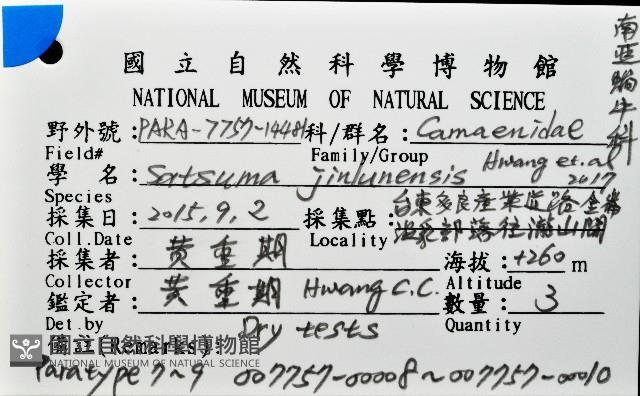 南亞蝸牛科
國立自然科學博物館
NATIONAL MUSEUM OF NATURAL SCIENCE
野外號: PAKA-7757-14481 科/群名: Camaenidae
Field# Family/Group
學名: Satsuma jinlunensis Hwang et.al 2017
Species
採集日: 2015.9.2 採集點: 台東多良產業道路金崙
Coll.Date Locality
採集者: 黃重期 海拔: +260 m
Collector Altitude
鑑定者: 黃重期 Hwang C.C. 數量: 3
Det.by Dry tests Quantity
(Remarks):
國立自然科學博物館
NATIONAL MUSEUM OF NATURAL SCIENCE
Paratype 7~9 007757-00008~007757-00010